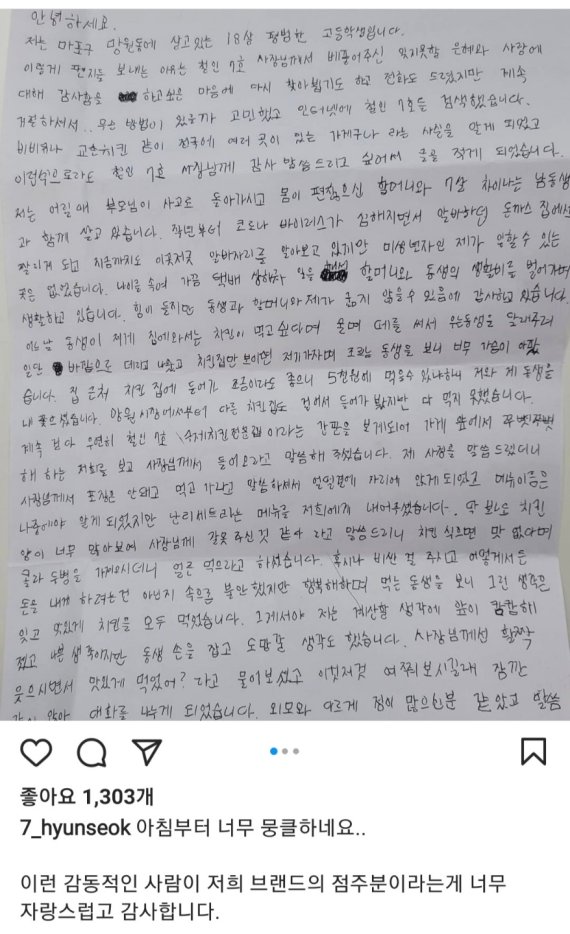 안녕하세요.
저는 마포구 망원동에 살고있는 18살 평범한 고등학생입니다.
이렇게 편지를 보내는 이유는 철인 7호 사장님께서 베풀어주신 잊지못할 은혜와 사랑에
대해 감사함을 하고싶은 마음에 다시 찾아뵙기도 하고 전화도 드렸지만 계속
거절하셔서.. 무슨 방법이 있을까 고민했고 인터넷에 철인 7호를 검색했습니다.
비비큐나 교촌치킨 같이 전국에 여러 곳이 있는 가게구나 라는 사실을 알게 되었고
이런식으로라도 철인 7호 사장님께 감사 말씀드리고 싶어서 글을 적게 되었습니다.
저는 어릴때 부모님이 사고로 돌아가시고 몸이 편찮으신 할머니와 7살 차이나는 남동생
과 함께 살고 있습니다. 작년부터 코로나 바이러스가 심해지면서 알바하던 돈까스 집에서
짤리게 되고 지금까지도 이곳저곳 알바자리를 알아보고 있지만 미성년자인 제가 일할수 있는
곳은 없었습니다. 나이를 속여 가끔 택배 상하차 일을 해서 할머니와 동생의 생활비를 벌어가며
생활하고 있습니다. 힘이 들지만 동생과 할머니와 제가 굶지 않을수 있음에 감사하고 있습니다.
어느날 동생이 제게 집에와서는 치킨이 먹고싶다며 울며 떼를 써서 우는동생을 달래주려
일단 바깥으로 데리고 나왔고 치킨집만 보이면 저기가자며 조르는 동생을 보니 너무 가슴이 아팠
습니다. 집 근처 치킨 집에 들어가 조금이라도 좋으니 5천원에 먹을수 있냐하니 저와 제 동생을
내쫓으셨습니다. 망원시장에서부터 다른 치킨집도 걸어서 들어가 봤지만 다 먹지 못했습니다.
계속 걷다 우연히 철인 7호 수제치킨전문점 이라는 간판을 보게되어 가게 앞에서 쭈뼛쭈뼛
해 하는 저희를 보고 사장님께서 들어오라고 말씀해 주셨습니다. 제 사정을 말씀 드렸더니
사장님께서 포장은 안돼고 먹고 가라고 말씀하셔서 얼떨결에 자리에 앉게 되었고 메뉴이름은
나중에야 알게 되었지만 난리세트라는 메뉴를 저희에게 내어주셨습니다. 딱 봐도 치킨
양이 너무 많아보여 사장님께 잘못 주신것 같다 라고 말씀드리니 치킨 식으면 맛 없다며
콜라 두병을 가져오시더니 얼른 먹으라고 하셨습니다. 혹시나 비싼 걸 주시고 어떻게서든
돈을 내게 하려는건 아닌지 속으로 불안했지만 행복해하며 먹는 동생을 보니 그런 생각은
잊고 맛있게 치킨을 모두 먹었습니다. 그제서야 저는 계산할 생각에 앞이 캄캄해
졌고 나쁜생각이지만 동생 손을 잡고 도망갈 생각도 했습니다. 사장님께선 활짝
웃으시면서 맛있게 먹었어? 라고 물어보셨고 이것저것 여쭤보시길래 잠깐
같이 앉아 대화를 나누게 되었습니다. 외모와 다르게 정이 많으신분 같았고 말씀
좋아요 1,303개
7_hyunseok 아침부터 너무 뭉클하네요..
이런 감동적인 사람이 저희 브랜드의 점주분이라는게 너무
자랑스럽고 감사합니다.